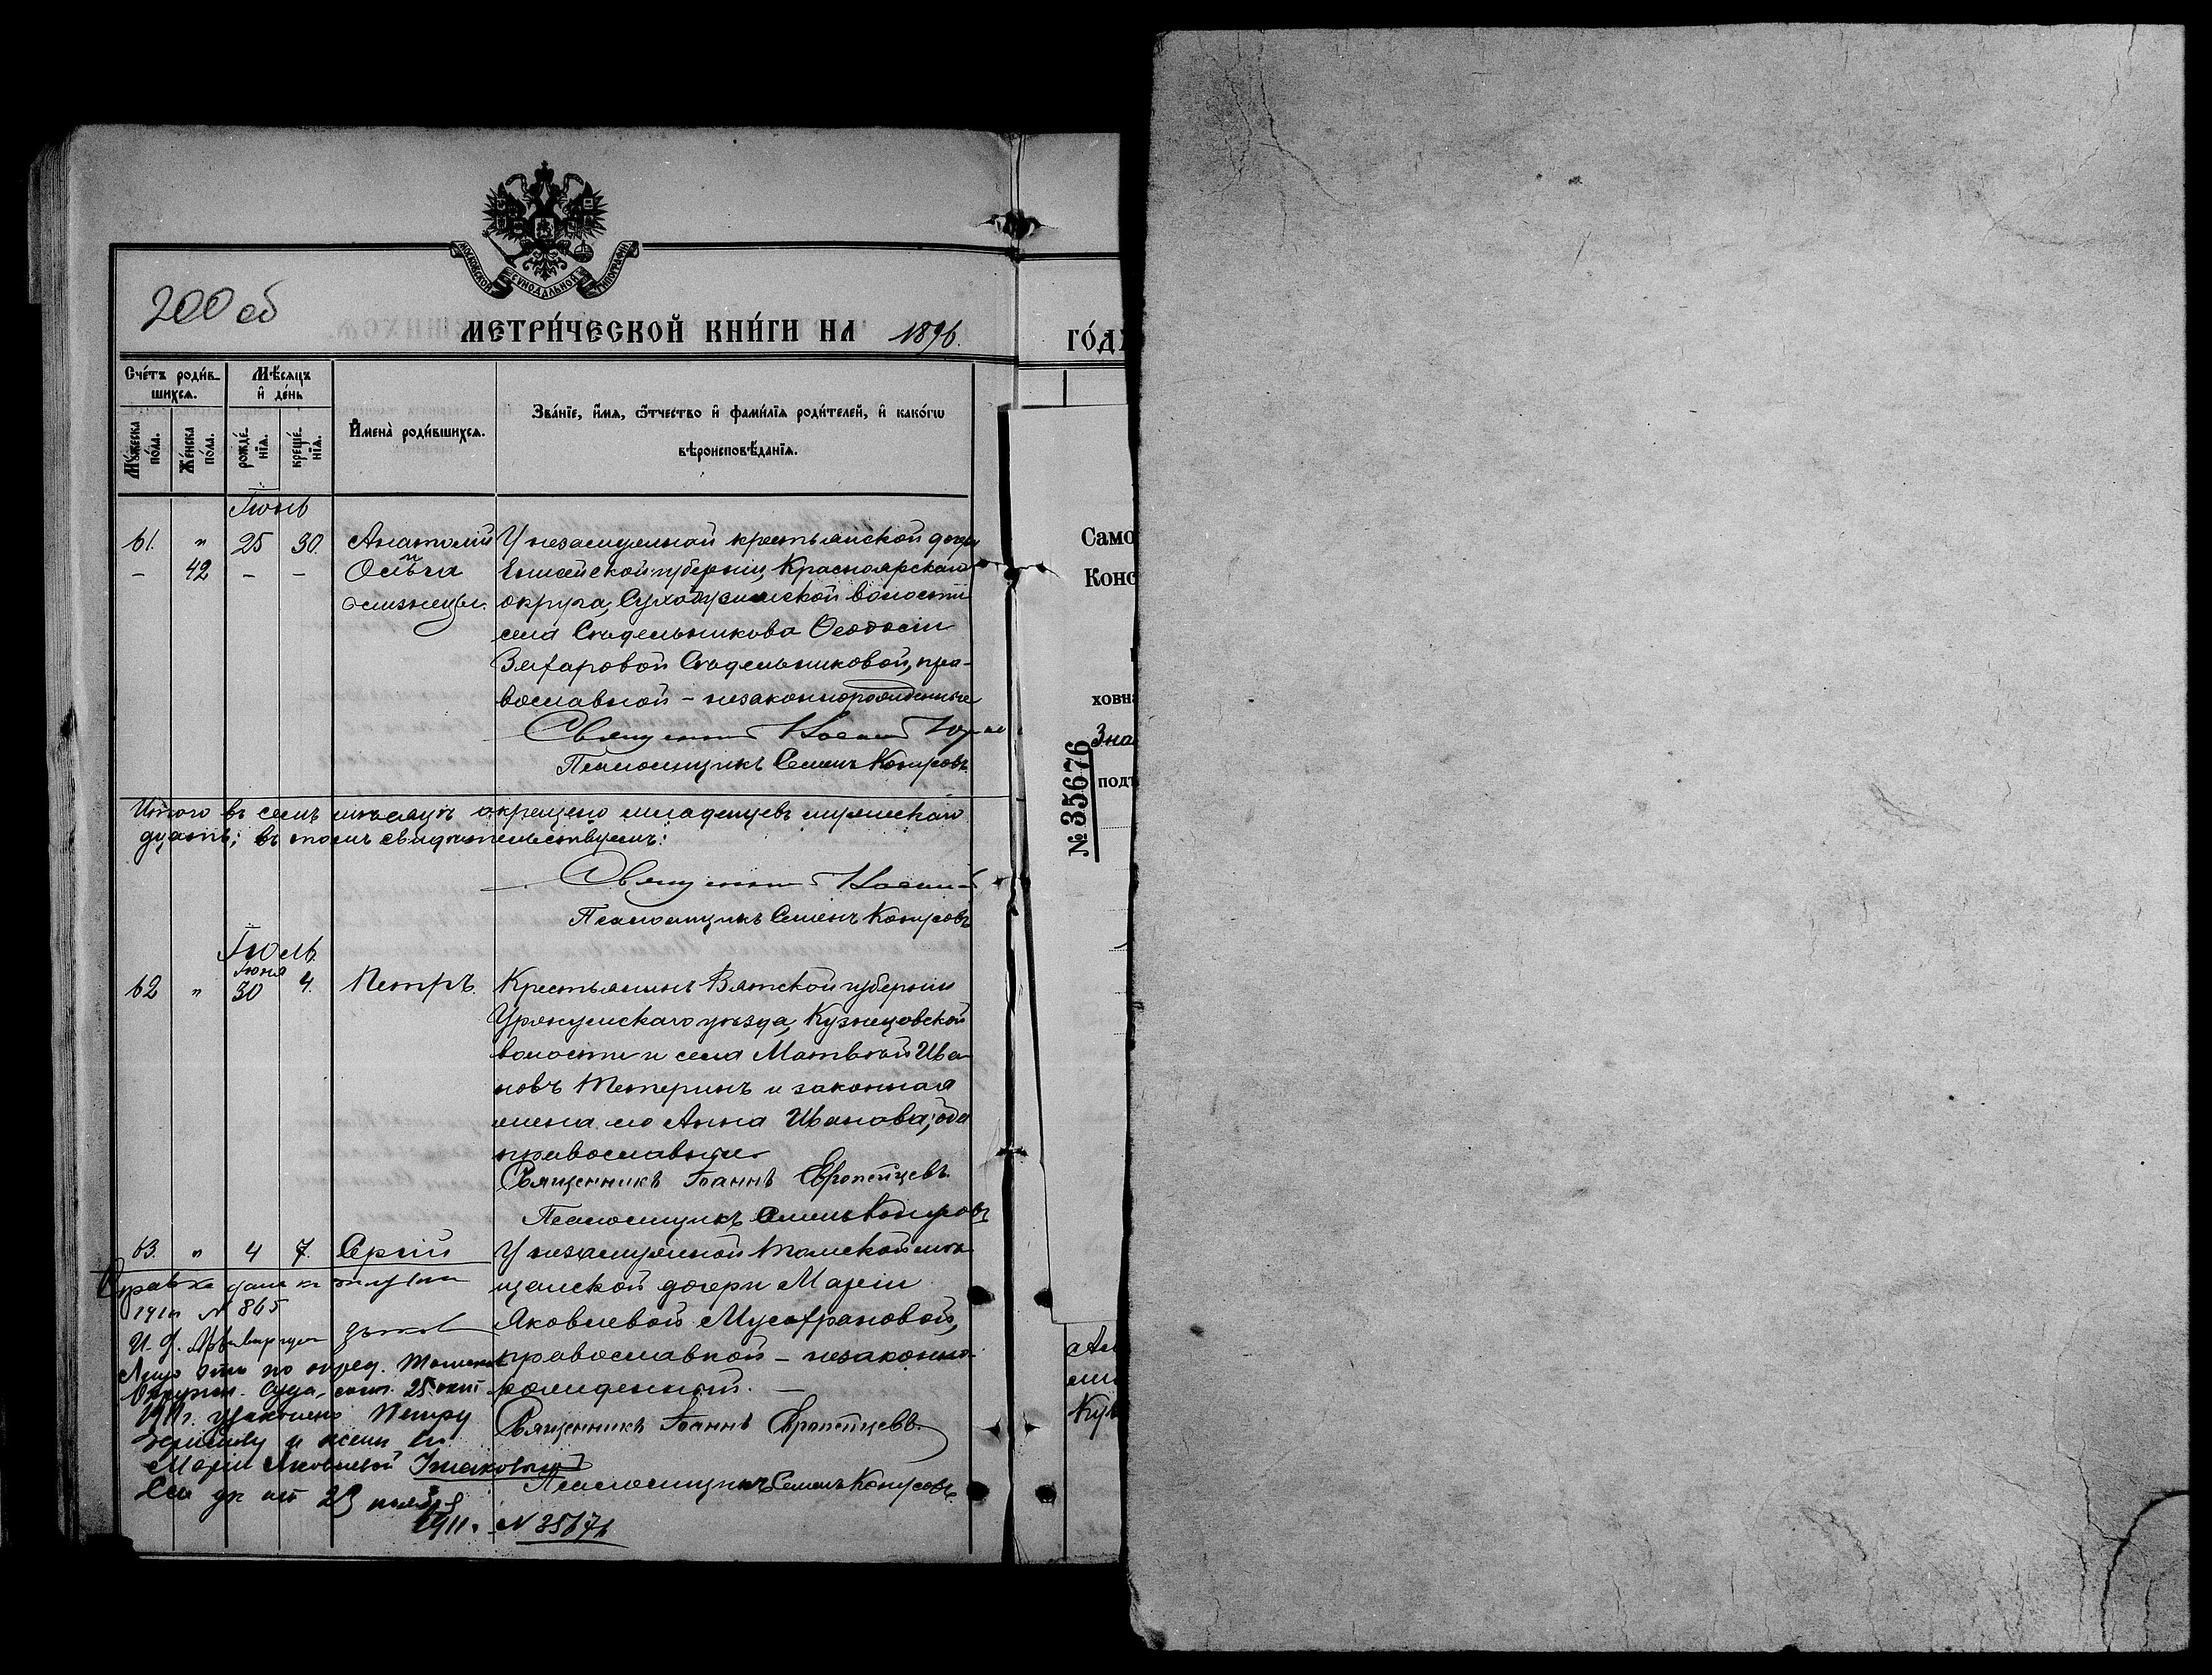 МОСКОВСКОЙ СѴНОДАЛЬНОЙ ТИПОГРАФІИ
200 об
МЕТРИ́ЧЕСКОЙ КНИ́ГИ НА 1896. ГО́ДЪ
Сче́тъ роди́в-
шихся.
Мѣ́сяцъ
и҆ де́нь
Мꙋ́жеска
по́ла.
Же́нска
по́ла.
рожде́-
нїя.
креще́-
нїя.
И҆мена̀ роди́вшихся.
Зва́нїе, и҆́мя, ѻ҆́тчество и҆ фами́лїя роди́телей, и҆ како́гѡ
вѣроисповѣ́данїя.
Іюнь
61. " 25 30. Анатолій У незамужней крестьянской дочери
– 42 – – и Ольга Енисейской губерніи, Красноярскаго
близнецы. округа, Сухобузимской волости
села Скадельникова Ѳеодосіи
Захаровой Скадельниковой, пра-
вославной – незаконнорожденные
Священникъ
Псаломщикъ Семенъ Комуровъ
Итого въ семъ мѣсяцѣ окрещено младенцевъ мужескаго
въ томъ свидѣтельствуемъ:
Священникъ
Псаломщикъ Семенъ Комуровъ
Іюль
Іюня
62 " 30 4. Петръ. Крестьянинъ Вятской губерніи
Уржумскаго уѣзда, Кузнецовской
волости и села Матвѣй Ива-
новъ Тетеринъ и законная
жена его Анна Иванова; оба
православные
Священникъ Іоаннъ Европейцевъ.
Псаломщикъ Семенъ Комуровъ
63. " 4 7. Сергій У незамужней Томской мѣ-
щанской дочери Маріи
Яковлевой Мусафрановой,
православной – незаконно-
рожденный. –
Священникъ Іоаннъ Европейцевъ.
Псаломщикъ Семенъ Комуровъ.
Справка дана
191 г. № 865
И. д. Архиваріуса
Лицо это по опред. Томскаго
Окружн. Суда, сост. 25 окт
1911 г. узаконено Петру
и жены его
Маріи Яковлевой
См ук от 23 ноября
1911. № 35676
Само
Конс
ховна
Зна
подъ
№ 35676